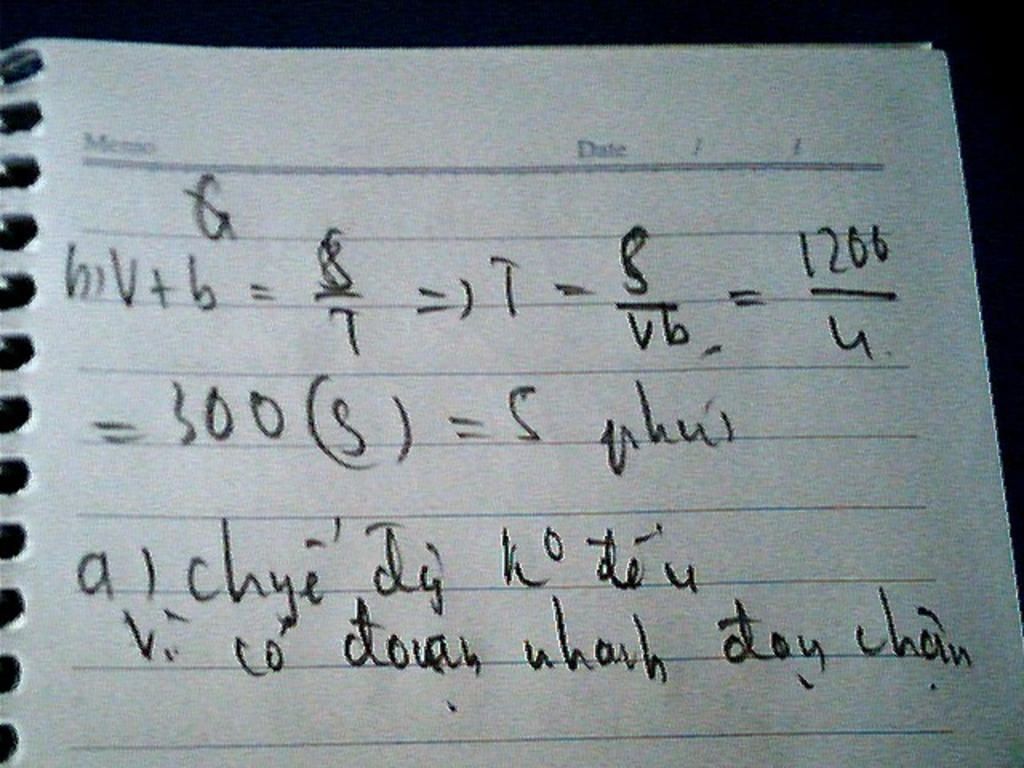 Memo Date / /
G
b) V + b = S/T => T = S/Vb = 1200/4
= 300 (S) = 5 phút
a) chyế đọ k° đếu
Vì có đoạn nhanh đoạn chận